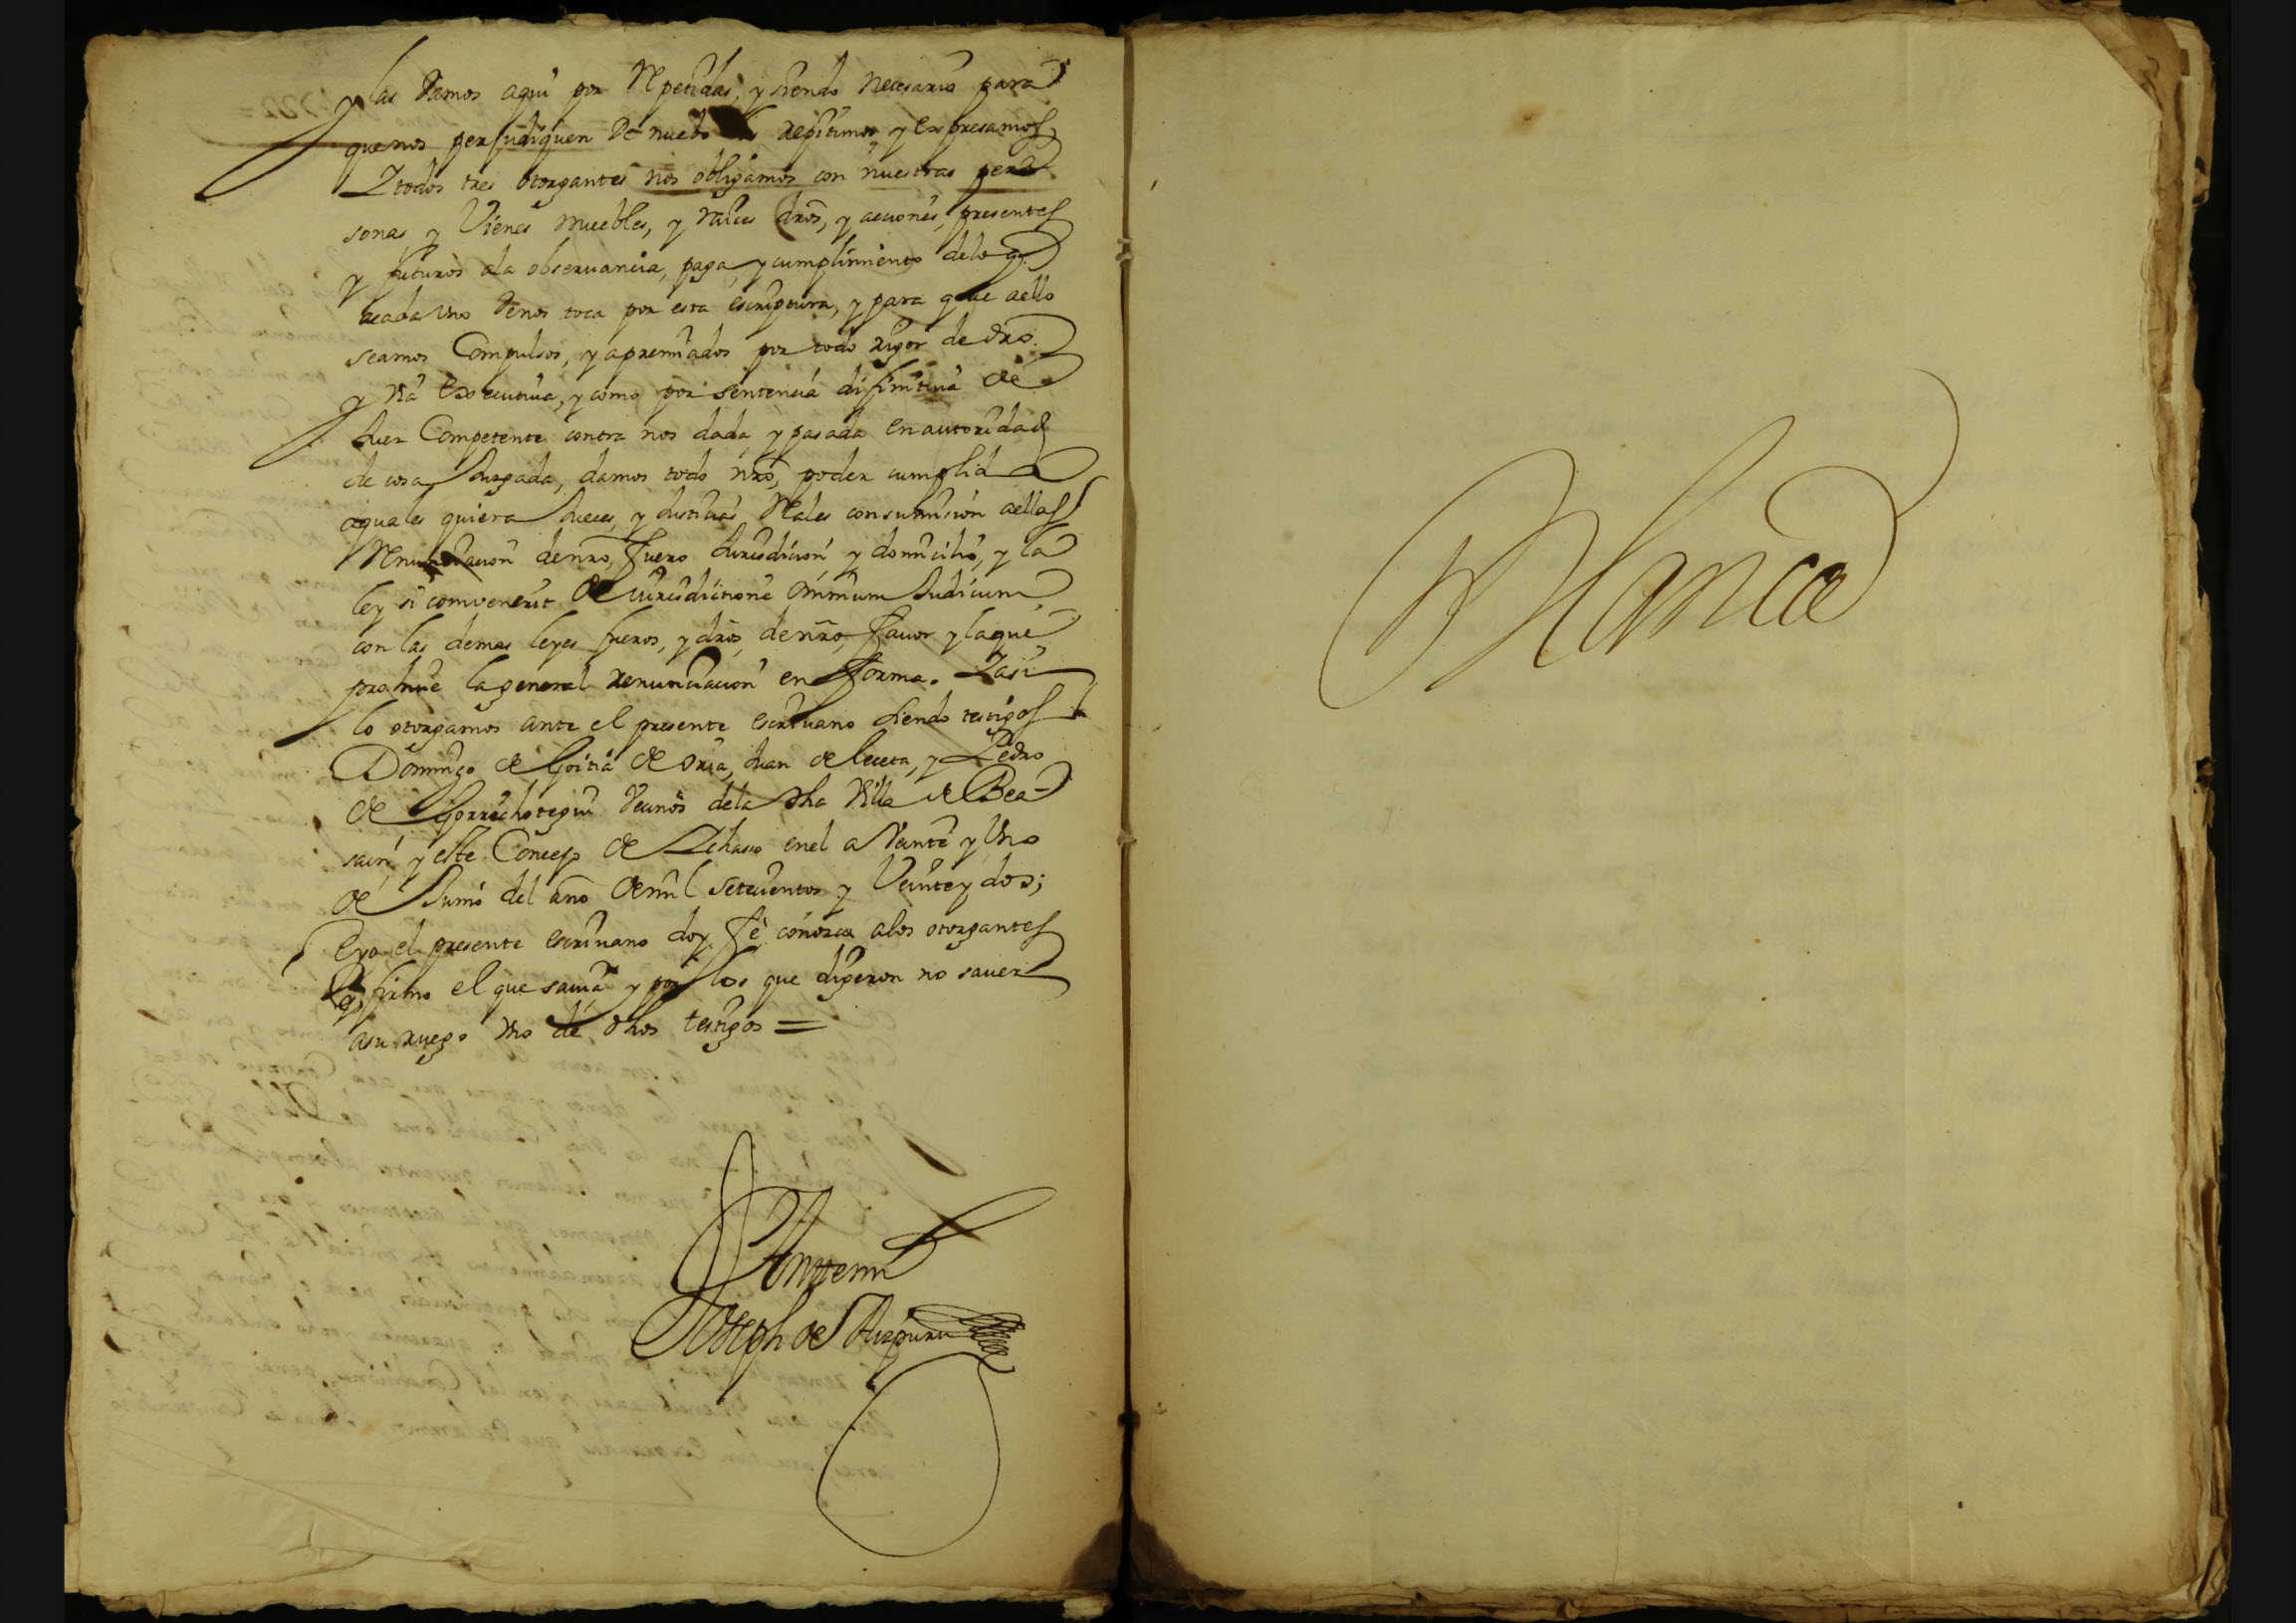 y las damos aqui por Repetidas, y siendo necesario para
que nos perjudiquen de nuebo las repitimos, y expresamos,
Y todos tres otorgantes nos obligamos con nuestras per-
sonas, y Vienes muebles, y raices dros, y acciones, presentes
y futuros ala observancia, paga, y cumplimiento delo q.
acada uno denos toca por esta escriptura, y para que aello
seamos Compulsos, y apremiados por todo rigor de dro.
y via executiva, y como por sentencia difinitiva de
Juez Competente contra nos dada, y pasada en autoridad
de cosa Juzgada, damos todo nro, poder cumplido
aquales quiera Jueces, y Justicias Reales con sumision aellas
Renunciacion de nro, fuero Jurisdicion y domicilio, y la
ley si convenerit de iurisdictione omnium Judicum
con las demas leyes fueros, y dros, de nro, favor y la que
prohive la general renunciacion en forma. Y asi
lo otorgamos ante el presente escrivano siendo testigos
Domingo de Goitia de Oria, Juan de leceta, y Pedro
de Gorrochotegui vecinos dela dha Villa de Bea-
sain, y este Concejo de Astigarreta enel a Veinte y Uno
de Junio del año de mil setecientos y Veinte y dos;
E yo el presente escrivano doy fe conozco alos otorgantes
firmo el que savia y por los que digeron no saver
asu ruego uno de dhos testigos =
Antemi
Joseph de Aizpuru
Blanca